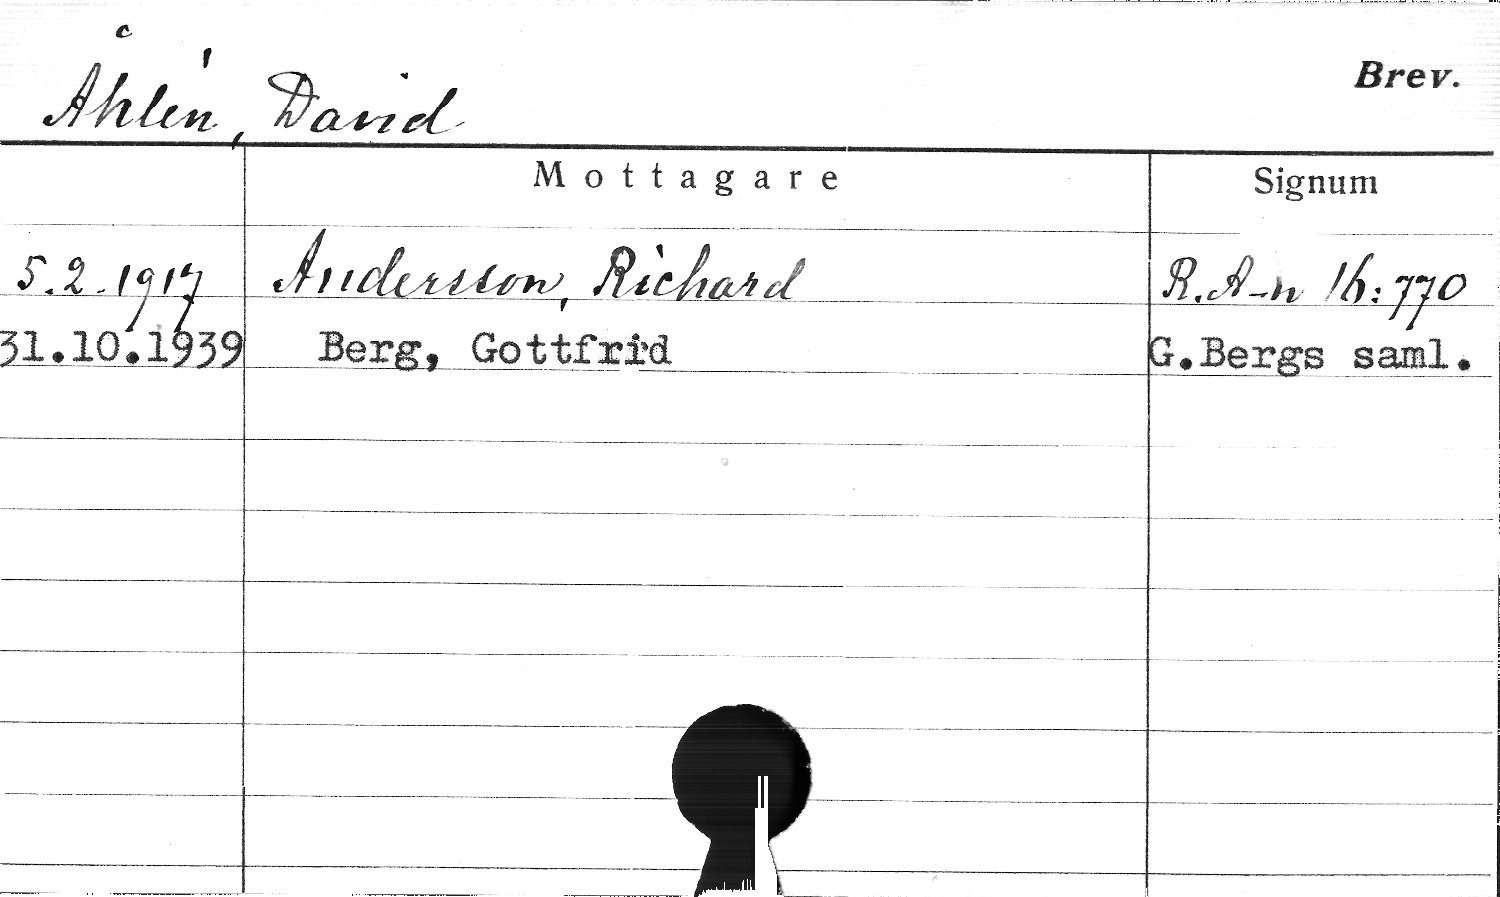 Åhlén, David
Brev.
Mottagare Signum
5.2.1917 Andersson, Richard R.A-n 1b:770
31.10.1939 Berg, Gottfrid G.Bergs saml.